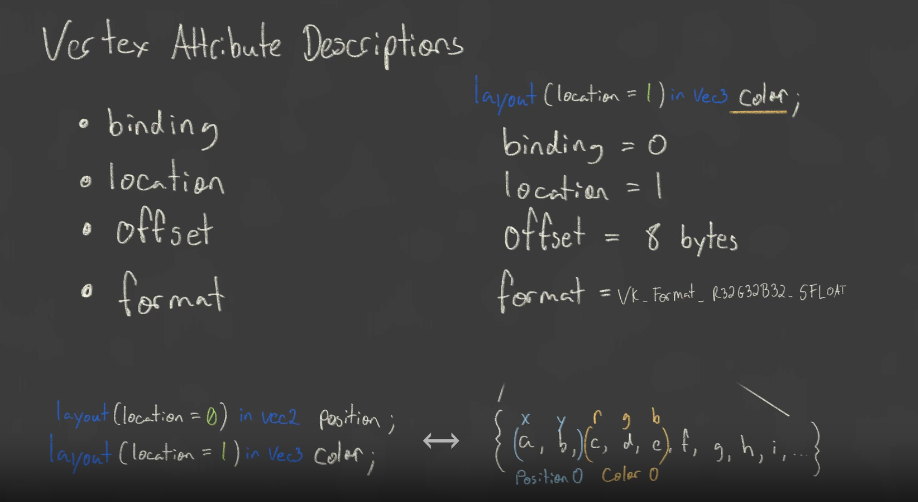 Vertex Attribute Descriptions
• binding
• location
• offset
• format
layout (location = 1) in vec3 color;
binding = 0
location = 1
offset = 8 bytes
format = VK_Format_R32G32B32_SFLOAT
layout (location = 0) in vec2 position;
layout (location = 1) in vec3 color;
x y r g b
{(a, b,)(c, d, e), f, g, h, i, ...}
Position 0 Color 0